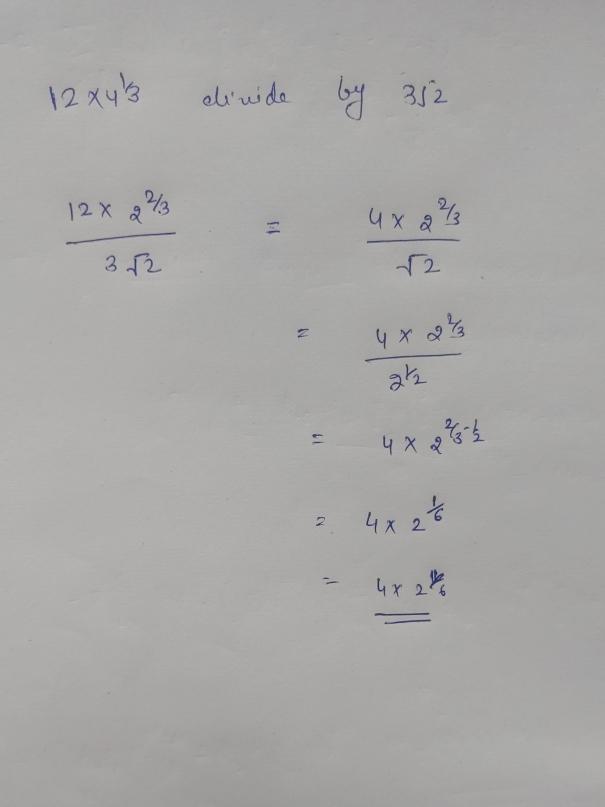 12 x 4^1/3 divide by 3√2
12 x 2^2/3 / 3√2 = 4 x 2^2/3 / √2
= 4 x 2^2/3 / 2^1/2
= 4 x 2^2/3-1/2
= 4 x 2^1/6
= 4 x 2^1/6